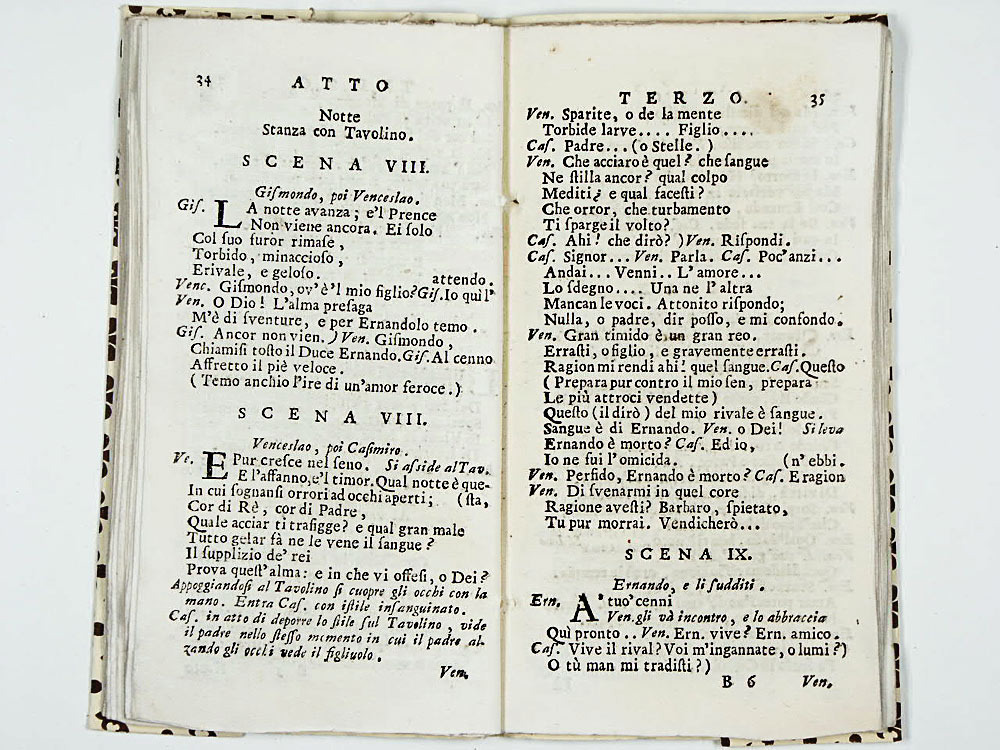 34 ATTO
Notte
Stanza con Tavolino.
SCENA VIII.
Giſmondo, poi Venceslao.
Giſ. LA notte avanza; e'l Prence
Non viene ancora. Ei ſolo
Col ſuo furor rimaſe,
Torbido, minaccioſo,
Erivale, e geloſo. attendo.
Venc. Giſmondo, ov'è'l mio figlio? Giſ. Io quì l'
Ven. O Dio! L'alma preſaga
M'è di ſventure, e per Ernandolo temo.
Giſ. Ancor non vien.) Ven. Giſmondo,
Chiamiſi toſto il Duce Ernando. Giſ. Al cenno
Affretto il piè veloce.
(Temo anchio l'ire di un'amor feroce.)
SCENA VIII.
Venceslao, poi Caſimiro.
Ve. EPur creſce nel ſeno. Si aſside al Tav.
E l'affanno, e'l timor. Qual notte è que-
In cui ſognanſi orrori ad occhi aperti; (ſta,
Cor di Rè, cor di Padre,
Quale acciar ti trafigge? e qual gran male
Tutto gelar fà ne le vene il ſangue?
Il ſupplizio de' rei
Prova queſt'alma: e in che vi offeſi, o Dei?
Appoggiandoſi al Tavolino ſi cuopre gli occhi con la
mano. Entra Caſ. con iſtile inſanguinato.
Caſ. in atto di deporre lo ſtile ſul Tavolino, vide
il padre nello ſteſſo momento in cui il padre al-
zando gli occhi vede il figliuolo.
Ven.
TERZO. 35
Ven. Sparite, o de la mente
Torbide larve.... Figlio....
Caſ. Padre... (o Stelle.)
Ven. Che acciaro è quel? che ſangue
Ne ſtilla ancor? qual colpo
Mediti? e qual faceſti?
Che orror, che turbamento
Ti ſparge il volto?
Caſ. Ahi! che dirò?) Ven. Riſpondi.
Caſ. Signor... Ven. Parla. Caſ. Poc'anzi...
Andai... Venni.. L'amore...
Lo ſdegno.... Una ne l'altra
Mancan le voci. Attonito riſpondo;
Nulla, o padre, dir poſſo, e mi confondo.
Ven. Gran timido è un gran reo.
Erraſti, o figlio, e gravemente erraſti.
Ragion mi rendi ahi! quel ſangue. Caſ. Queſto
(Prepara pur contro il mio ſen, prepara
Le più attroci vendette)
Queſto (il dirò) del mio rivale è ſangue.
Sangue è di Ernando. Ven. o Dei! Si leva
Ernando è morto? Caſ. Ed io,
Io ne fui l'omicida. (n'ebbi.
Ven. Perfido, Ernando è morto? Caſ. E ragion
Ven. Di ſvenarmi in quel core
Ragione aveſti? Barbaro, ſpietato,
Tu pur morrai. Vendicherò...
SCENA IX.
Ernando, e li ſudditi.
Ern. A' tuo'cenni
Ven. gli và incontro, e lo abbraccia
Quì pronto.. Ven. Ern. vive? Ern. amico.
Caſ. Vive il rival? Voi m'ingannate, o lumi?)
O tù man mi tradiſti?)
B 6 Ven.